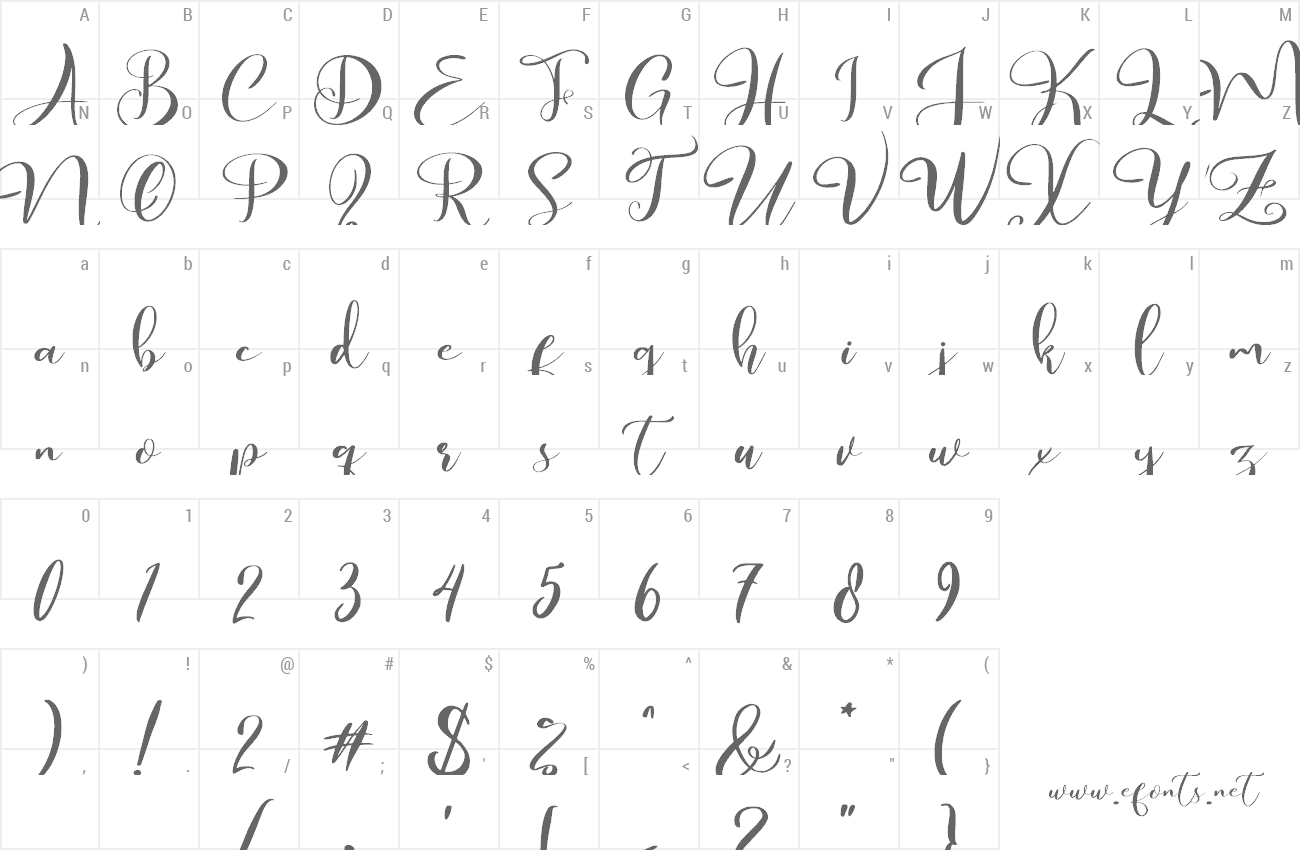 A B C D E F G H I J K L M
A B C D E F G H I J K L M
N O P Q R S T U V W X Y Z
N O P Q R S T U V W X Y Z
a b c d e f g h i j k l m
a b c d e f g h i j k l m
n o p q r s t u v w x y z
n o p q r s t u v w x y z
0 1 2 3 4 5 6 7 8 9
0 1 2 3 4 5 6 7 8 9
) ! @ # $ % ^ & * (
) ! 2 # $ % ^ & * (
, . / ; ' [ < ? " }
/ ; ' [ ? " }
www.efonts.net